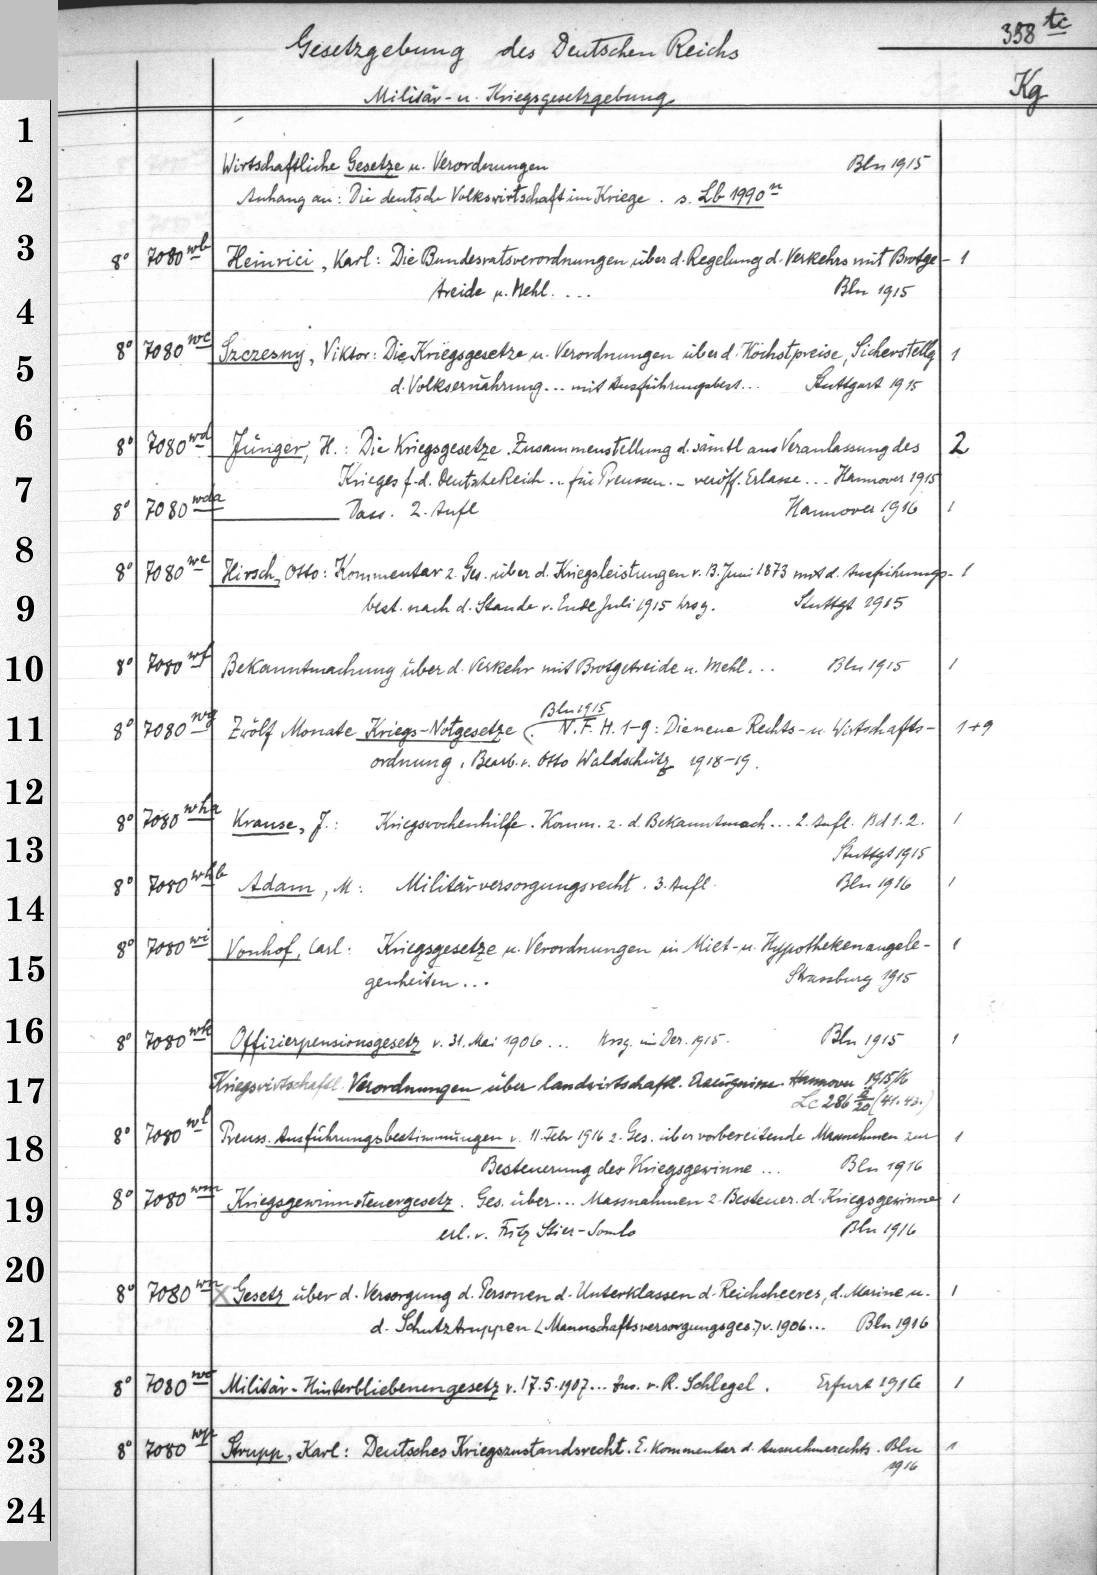 358 tc
Gesetzgebung des Deutschen Reichs
Militär- u. Kriegsgesetzgebung
Kg
1
Wirtschaftliche Gesetze u. Verordnungen Bln 1915
2 Anhang an: Die deutsche Volkswirtschaft im Kriege. s. Lb 1990 n
3 8° 7080 wb Heinrici, Karl: Die Bundesratsverordnungen über d. Regelung d. Verkehrs mit Brotge- 1
treide u. Mehl. ... Bln 1915
4
8° 7080 wc Szczesny, Viktor: Die Kriegsgesetze u. Verordnungen über d. Höchstpreise, Sicherstellg 1
5 d. Volksernährung... mit Ausführungsbest... Stuttgart 1915
6 8° 7080 wd Jünger, H.: Die Kriegsgesetze. Zusammenstellung d. sämtl aus Veranlassung des 2
7 Krieges f. d. Deutsche Reich .. für Preussen.. veröff. Erlasse... Hannover 1915
8° 7080 wda Dass. 2. Aufl Hannover 1916 1
8
8° 7080 we Hirsch, Otto: Kommentar z. Ges. über d. Kriegsleistungen v. 13. Juni 1873 mit d. Ausführungs- 1
9 best. nach d. Stande v. Ende Juli 1915 hrsg. Stuttgt 1915
10 8° 7080 wf Bekanntmachung über d. Verkehr mit Brotgetreide u. Mehl... Bln 1915 1
Bln 1915
11 8° 7080 wg Zwölf Monate Kriegs-Notgesetze (. N.F. H. 1-9: Die neue Rechts- u. Wirtschafts- 1+9
ordnung. Bearb. v. Otto Waldschütz 1918-19.
12
8° 7080 wha Krause, J.: Kriegswochenhilfe. Komm. z. d. Bekanntmach... 2. Aufl. Bd 1.2. 1
13 Stuttgt 1915
8° 7080 whb Adam, M: Militärversorgungsrecht. 3. Aufl. Bln 1916 1
14
8° 7080 wi Vonhof, Carl: Kriegsgesetze u. Verordnungen in Miet- u. Hypothekenangele- 1
15 genheiten... Strassburg 1915
16 8° 7080 wk Offizierpensionsgesetz v. 31. Mai 1906... Hrsg. im Dez. 1915. Bln 1915 1
17 Kriegswirtschaftl. Verordnungen über landwirtschaftl. Erzeugnisse. Hannover 1915/16
Lc 286 (41.43.)
18 8° 7080 wl Preuss. Ausführungsbestimmungen v. 11. Febr 1916 z. Ges. über vorbereitende Massnahmen zur 1
Besteuerung der Kriegsgewinne ... Bln 1916
19 8° 7080 wm Kriegsgewinnsteuergesetz. Ges. über... Massnahmen z. Besteuer. d. Kriegsgewinne 1
erl. v. Fritz Stier-Somlo Bln 1916
20
8° 7080 wn X Gesetz über d. Versorgung d. Personen d. Unterklassen d. Reichsheeres, d. Marine u. 1
21 d. Schutztruppen (Mannschaftsversorgungsges.) v. 1906... Bln 1916
22 8° 7080 wo Militär-Hinterbliebenengesetz v. 17.5.1907... Zus. v. R. Schlegel. Erfurt 1916 1
23 8° 7080 wp Strupp, Karl: Deutsches Kriegszustandsrecht. E. Kommentar d. Ausnahmerechts. Bln 1
1916
24